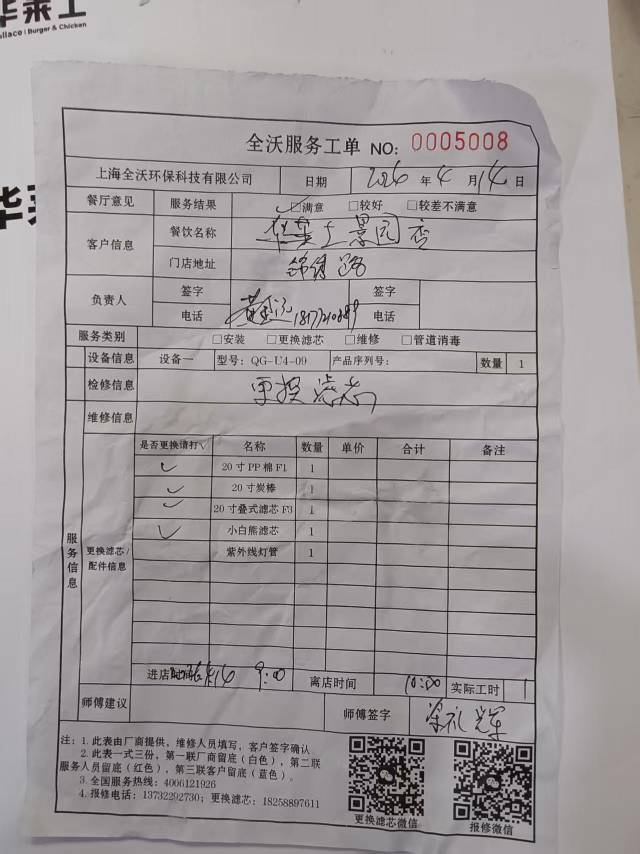 华莱士
Wallace | Burger & Chicken
全沃服务工单 NO: 0005008
上海全沃环保科技有限公司 日期 2026 年 4 月 14 日
餐厅意见 服务结果 ☑满意 □较好 □较差不满意
客户信息 餐饮名称 华莱士景园店
门店地址 锦绣路
负责人 签字 签字
电话 电话
服务类别 □安装 □更换滤芯 □维修 □管道消毒
设备信息 设备一 型号: QG-U4-09 产品序列号: 数量 1
检修信息 更换滤芯
维修信息
服务信息
更换滤芯/配件信息
是否更换请打√ 名称 数量 单价 合计 备注
✓ 20寸PP棉F1 1
✓ 20寸炭棒 1
✓ 20寸叠式滤芯F3 1
✓ 小白熊滤芯 1
紫外线灯管 1
进店时间 9:00 离店时间 10:00 实际工时 1
师傅建议 师傅签字
注: 1.此表由厂商提供, 维修人员填写, 客户签字确认
2.此表一式三份, 第一联厂商留底(白色), 第二联
服务人员留底(红色), 第三联客户留底(蓝色)。
3.全国服务热线: 4006121926
4.报修电话: 13732292730; 更换滤芯: 18258897611
更换滤芯微信 报修微信